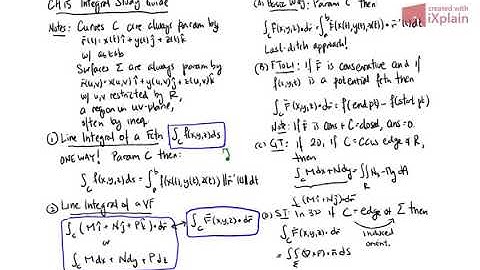 CH 15 Integral Study Guide
Notes: Curves C are always param by
r̄(t) = x(t)î + y(t)ĵ + z(t)k̂
w/ a≤t≤b
Surfaces Σ are always param by
r̄(u,v) = x(u,v)î + y(u,v)ĵ + z(u,v)k̂
w/ u,v restricted by R,
a region in uv-plane,
often by ineq.
① Line Integral of a Fctn ∫_C f(x,y,z)ds
ONE WAY! Param C then:
∫_C f(x,y,z)ds = ∫_a^b f(x(t),y(t),z(t)) ||r̄'(t)||dt
② Line Integral of a VF
∫_C (Mî + Nĵ + Pk̂)•dr̄
or
∫_C Mdx + Ndy + Pdz
∫_C F̄(x,y,z)•dr̄
Way: Param C Then
∫_C F̄(x,y,z)•dr̄ = ∫_a^b F̄(x(t),y(t),z(t))•r̄'(t)dt
Last ditch approach!
(B) FTOLI: if F̄ is conservative and if
f(x,y,z) is a potential fctn then
∫_C F̄(x,y,z)•dr̄ = f(end pt) - f(start pt)
Note: If F̄ is cons + C=closed, ans=0.
(C) GT: if 2D, if C = CCW edge of R,
then
∫_C Mdx + Ndy = ∬_R N_x - M_y dA
∫_C (Mî + Nĵ)•dr̄
(D) ST: in 3D if C = edge of Σ then
induced
orient.
∫_C F̄(x,y,z)•dr̄
= ∬_Σ (∇×F̄)•n̄ dS
created with
iXplain